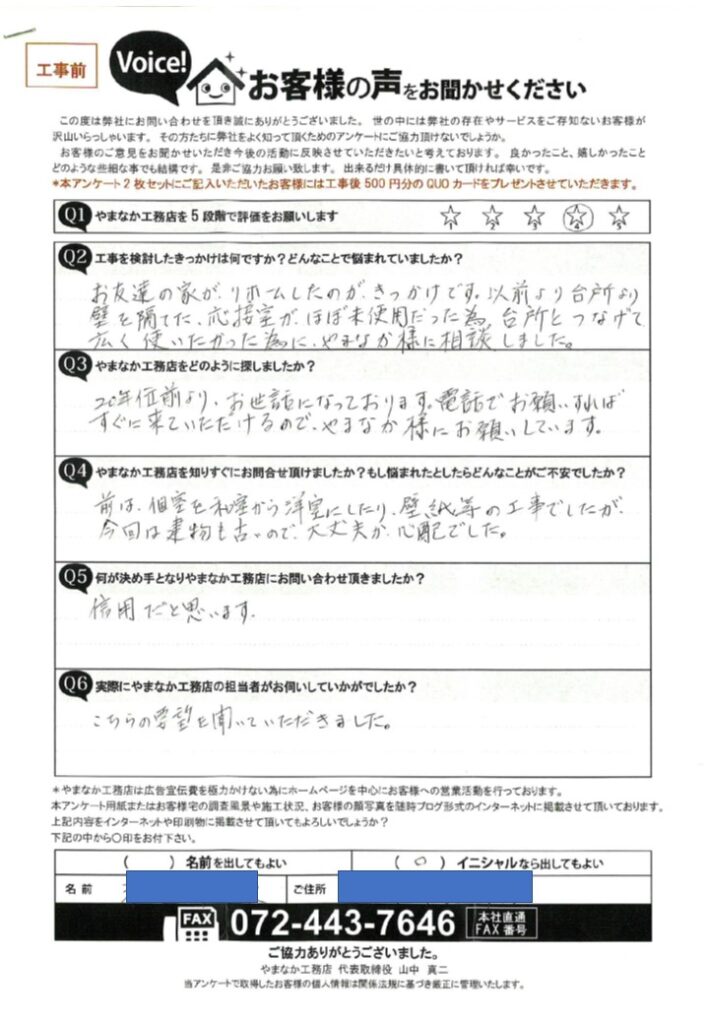 工事前
Voice!
お客様の声をお聞かせください
この度は弊社にお問い合わせを頂き誠にありがとうございました。 世の中には弊社の存在やサービスをご存知ないお客様が
沢山いらっしゃいます。 その方たちに弊社をよく知って頂くためのアンケートにご協力頂けないでしょうか。
お客様のご意見をお聞かせいただき今後の活動に反映させていただきたいと考えております。 良かったこと、嬉しかったこと
どのような些細な事でも結構です。 是非ご協力お願い致します。 出来るだけ具体的に書いて頂ければ幸いです。
*本アンケート2枚セットにご記入いただいたお客様には工事後500円分のQUOカードをプレゼントさせていただきます。
Q1 やまなか工務店を5段階で評価をお願いします
1 2 3 4 5
Q2 工事を検討したきっかけは何ですか?どんなことで悩まれていましたか?
お友達の家が、リホームしたのが、きっかけです。以前より台所より
壁を隔てた、応接室が、ほぼ未使用だった為、台所とつなげて
広く使いたかった為に、やまなか様に相談しました。
Q3 やまなか工務店をどのように探しましたか?
20年位前より、お世話になっております。電話でお願いすれば
すぐに来ていただけるので、やまなか様にお願いしています。
Q4 やまなか工務店を知りすぐにお問合せ頂けましたか?もし悩まれたとしたらどんなことがご不安でしたか?
前は、個室を和室から洋室にしたり、壁紙等の工事でしたが、
今回は建物も古いので、大丈夫か、心配でした。
Q5 何が決め手となりやまなか工務店にお問い合わせ頂きましたか?
信用だと思います。
Q6 実際にやまなか工務店の担当者がお伺いしていかがでしたか?
こちらの要望を聞いていただきました。
*やまなか工務店は広告宣伝費を極力かけない為にホームページを中心にお客様への営業活動を行っております。
本アンケート用紙またはお客様宅の調査風景や施工状況、お客様の顔写真を随時ブログ形式のインターネットに掲載させて頂いております。
上記内容をインターネットや印刷物に掲載させて頂いてもよろしいでしょうか?
下記の中から○印をお付下さい。
( ) 名前を出してもよい ( ○ ) イニシャルなら出してもよい
名前 ご住所
FAX 072-443-7646 本社直通 FAX番号
ご協力ありがとうございました。
やまなか工務店 代表取締役 山中 真二
当アンケートで取得したお客様の個人情報は関係法規に基づき厳正に管理いたします。